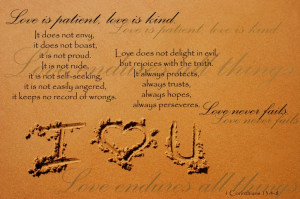 Love is patient, love is kind.
Love is patient, love is kind
It does not envy,
it does not boast,
it is not proud.
It is not rude,
it is not self-seeking,
it is not easily angered,
it keeps no record of wrongs.
Love does not delight in evil,
but rejoices with the truth.
It always protects,
always trusts,
always hopes,
always perseveres.
Love never fails.
Love never fails
I ♡ U
Love endures all things
1 Corinthians 13:4-8